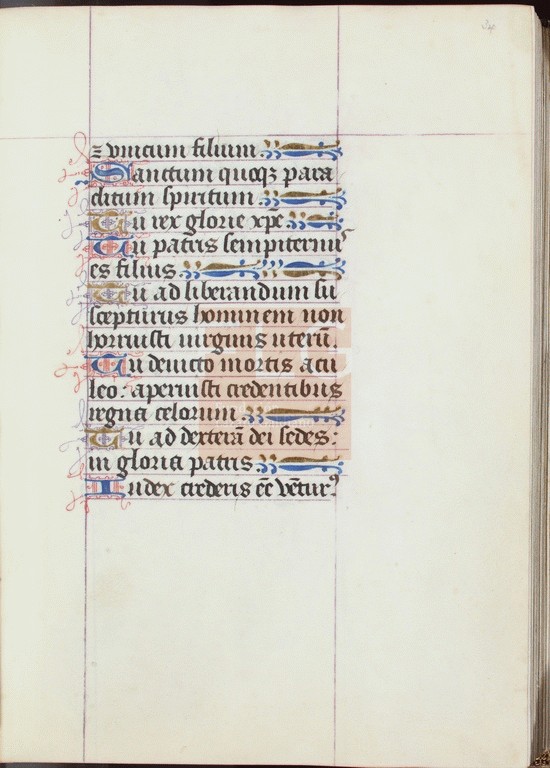 ⁊ vnicum filium
Sanctum quoqꝫ para
clitum spiritum
Tu rex glorie xp̄e
Tu patris sempiternu᷒
es filius
Tu ad liberandum su
scepturus hominem non
horruisti uirginis uterū.
Tu deuicto mortis acu
leo: aperuisti credentibus
regna celorum
Tu ad dexterā dei sedes:
in gloria patris
Iudex crederis eē vētur⁹